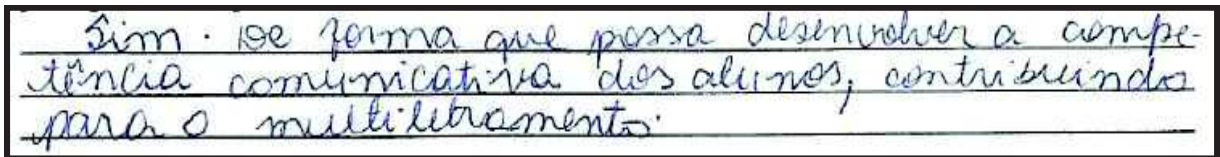 Sim. De forma que possa desenvolver a compe-
tência comunicativa dos alunos, contribuindo
para o multiletramento.